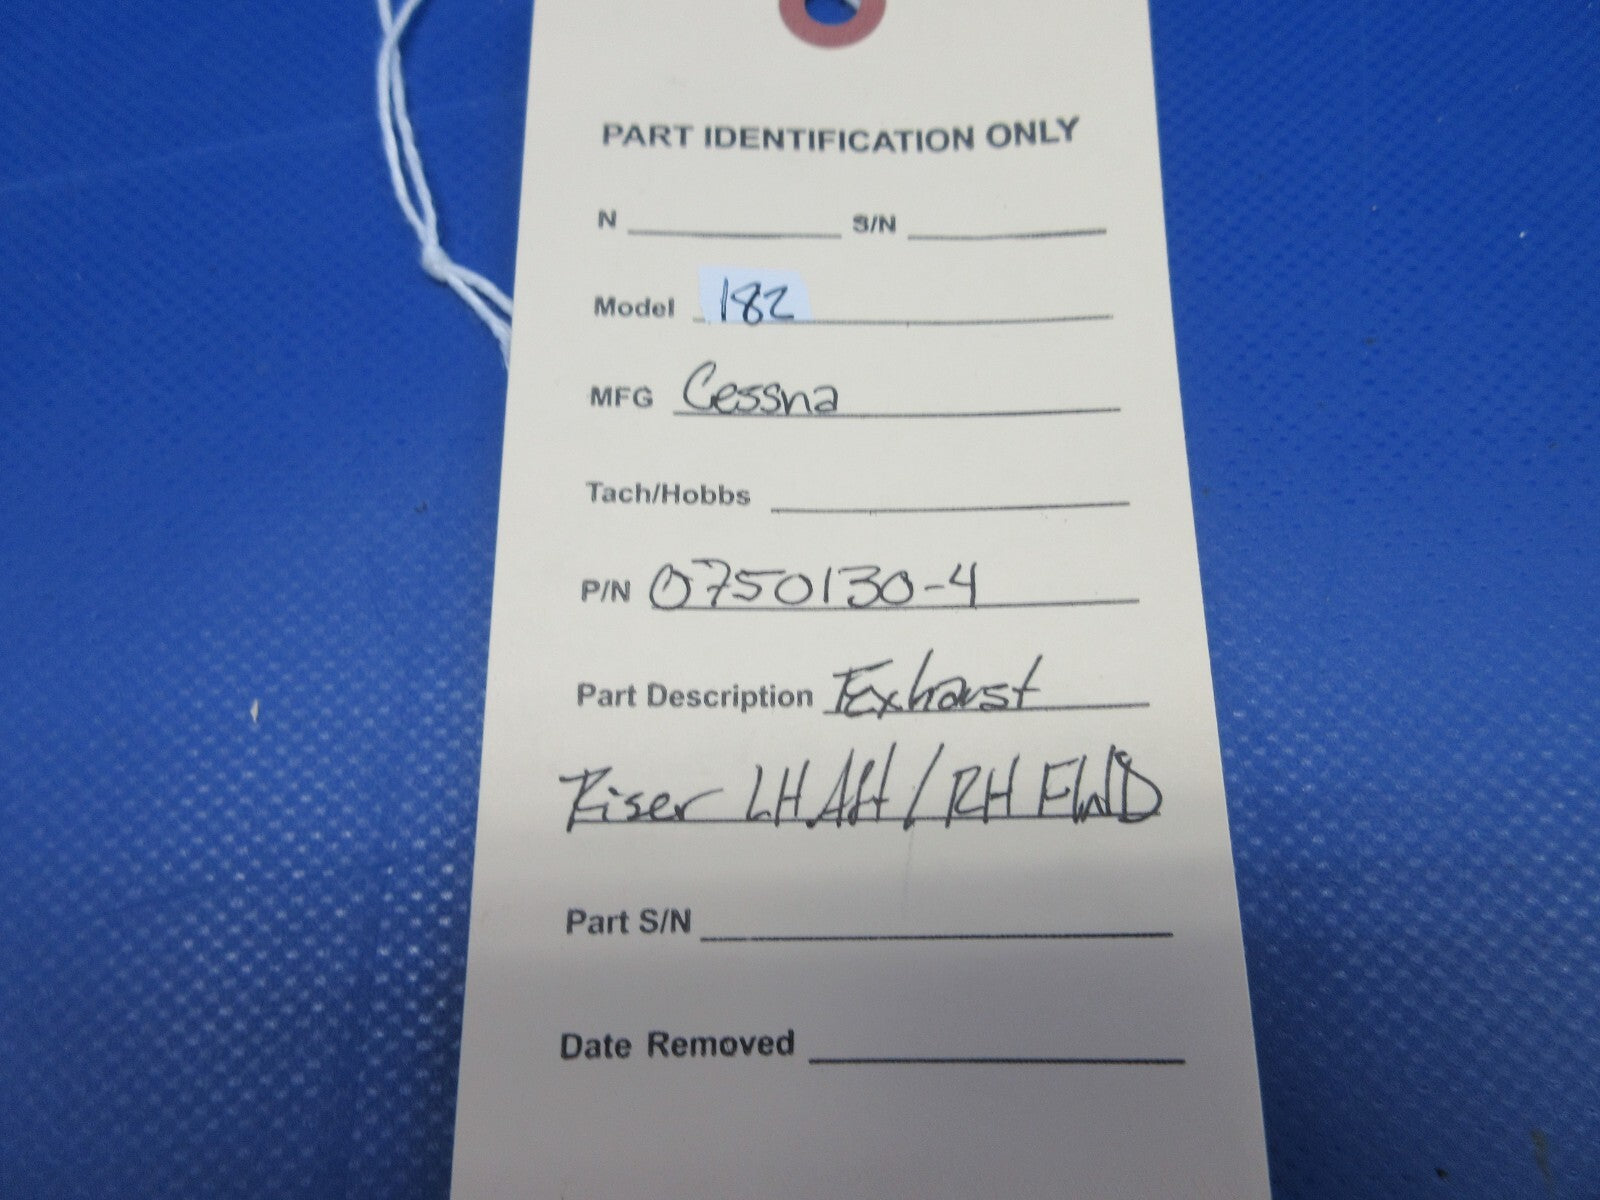 PART IDENTIFICATION ONLY
N S/N
Model 182
MFG Cessna
Tach/Hobbs
P/N 0750130-4
Part Description Exhaust
Riser LH Aft / RH FWD
Part S/N
Date Removed